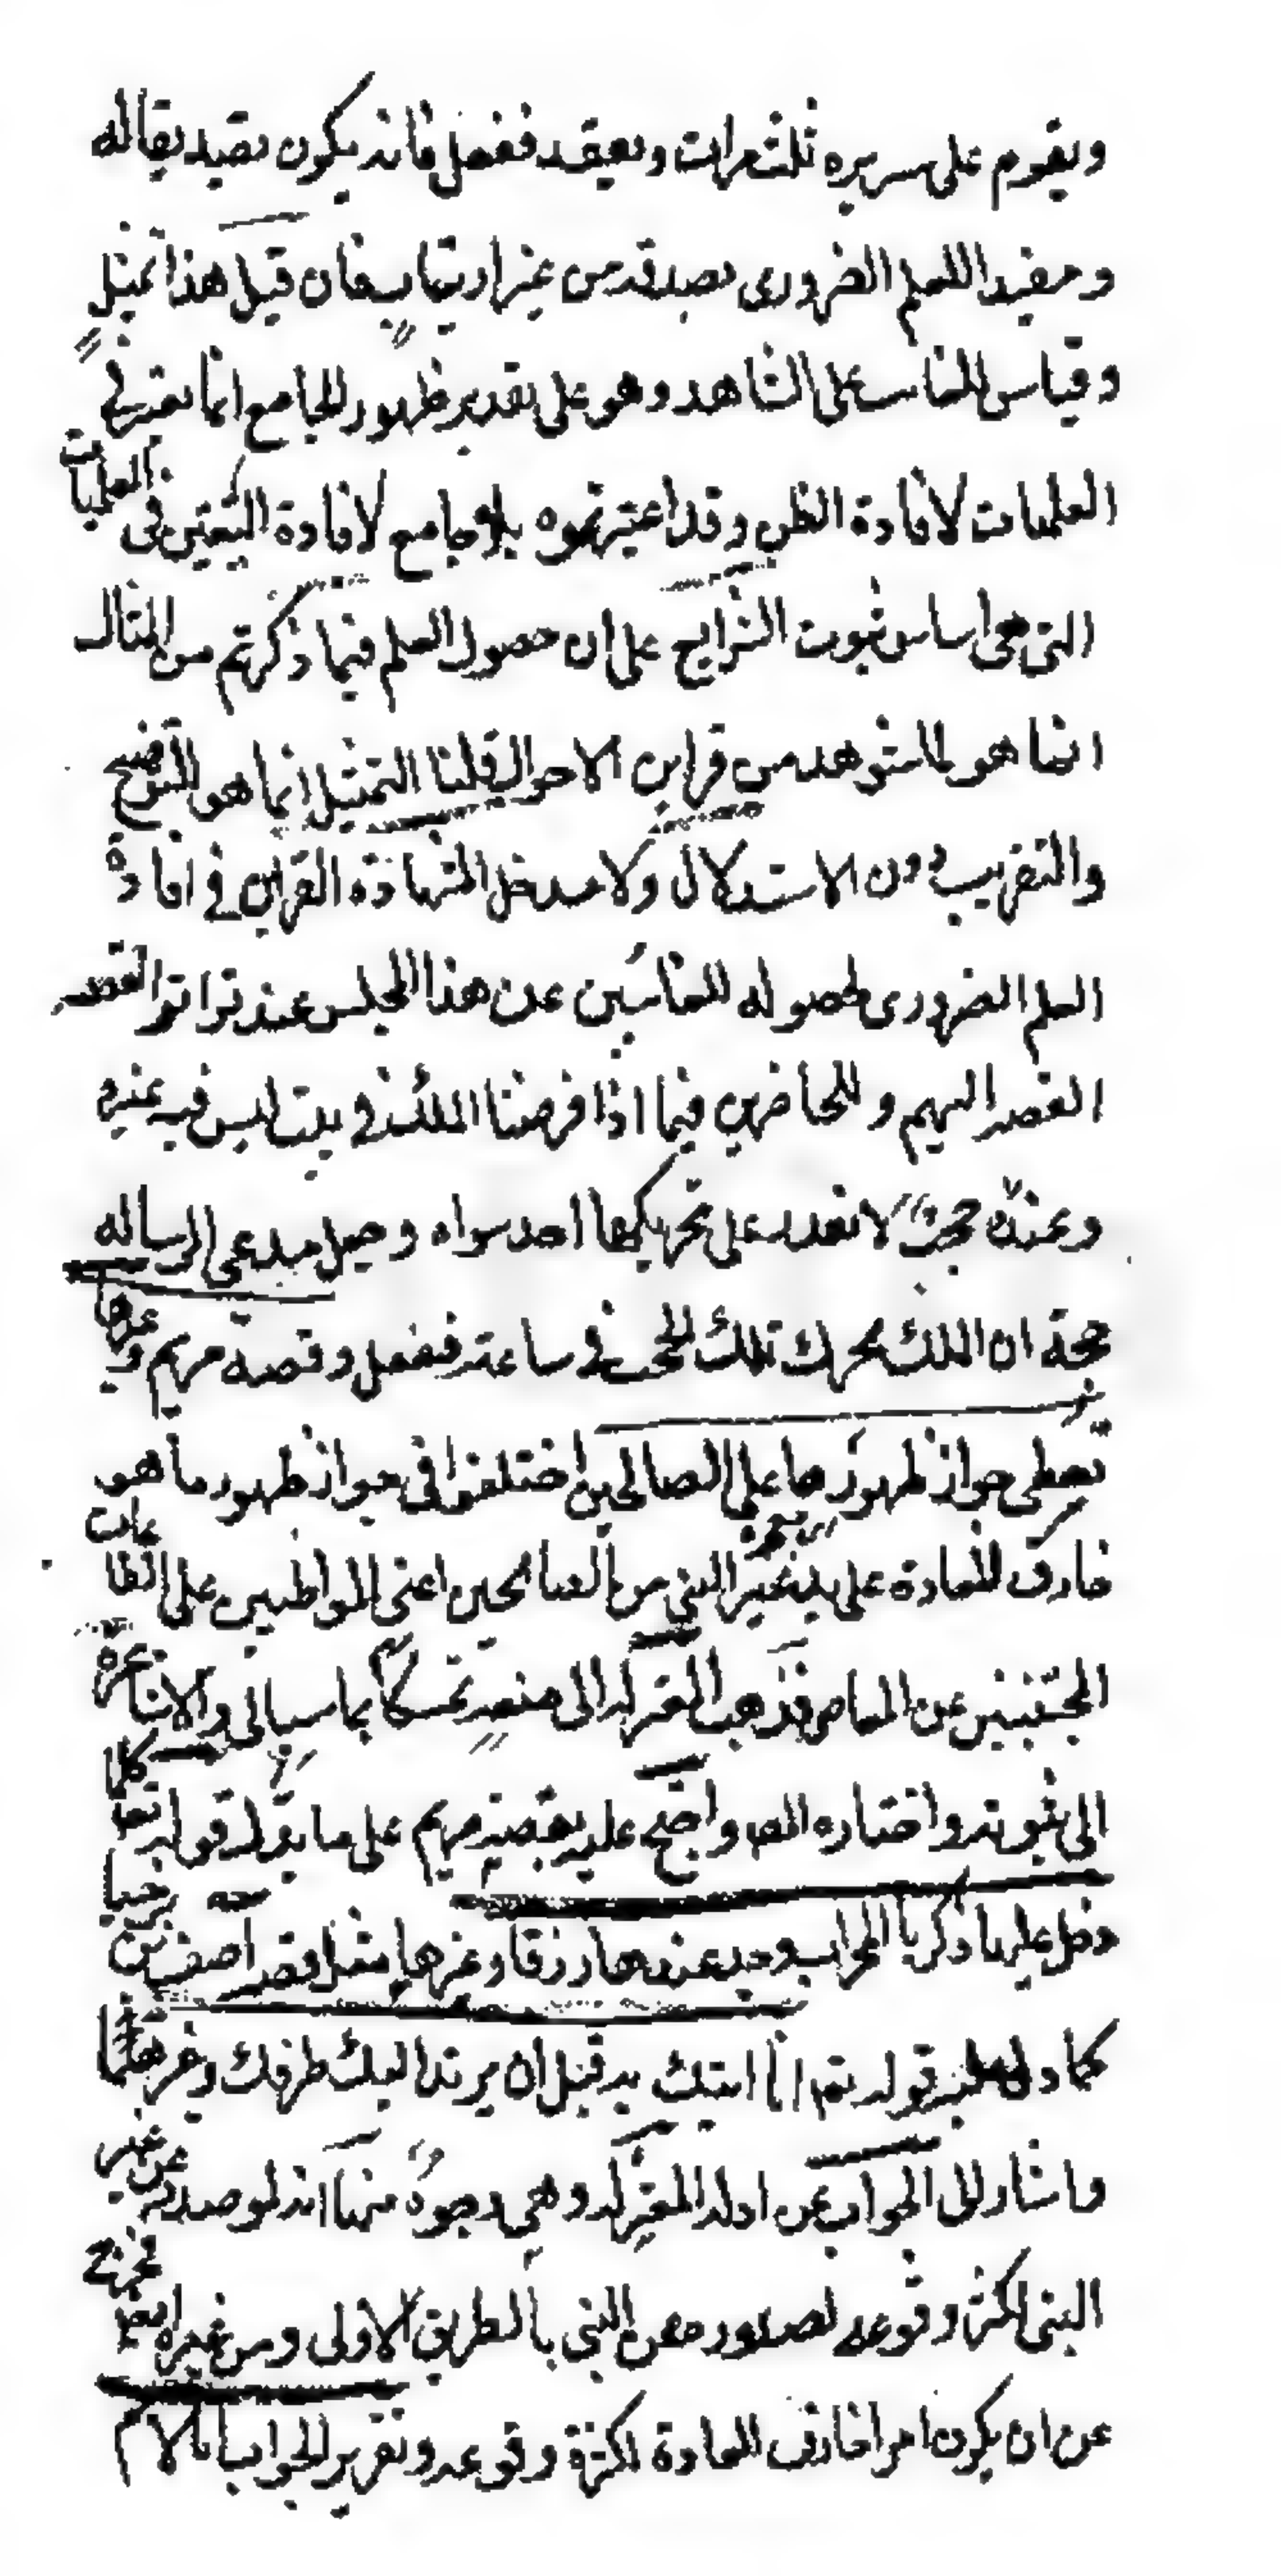 ويقوم على سريره ثلث مرات ويقعد ففعل فانه يكون تصديقا له
ومفيدا للعلم الضرورى بصدقه من غير ارتياب فان قيل هذا تمثيل
وقياس للغائب على الشاهد وهو على تقدير ظهور الجامع انما يعتبر فى
العمليات لافادة الظن وقد اعتبرتموه بلا جامع لافادة اليقين فى العلميات
التى هى اساس ثبوت الشرايع على ان حصول العلم فيما ذكرتم من المثال
انما هو لما شوهد من قراين الاحوال قلنا التمثيل انما هو للتوضيح
والتقريب دون الاستدلال ولا مدخل لمشاهدة القراين فى افادة
العلم الضرورى لحصوله للغائبين عن هذا المجلس عند تواتر القصة
اليهم وللحاضرين فيما اذا فرضنا الملك فى بيت ليس فيه غيره
ودونه حجب لا يقدر على تحريكها احد سواه وجعل مدعى الرسالة
حجته ان الملك يحرك تلك الحجب فى ساعته ففعل وقصة مريم وغيرها
تعطى جواز ظهورها على الصالحين اختلفوا فى جواز ظهور ما هو
خارق للعادة على يد غير النبى من الصالحين اعنى المواظبين على الطاعات
المجتنبين عن المعاصى فذهب المعتزلة الى منعه تمسكا بما سياتى والاشاعرة
الى ثبوته واختاره المص واحتج عليه بقصة مريم على ما يدل قوله تعا كلما
دخل عليها زكريا المحراب وجد عندها رزقا وغيرها مثل قصة آصف بن برخيا
كما دل عليه قوله تع انا اتيك به قبل ان يرتد اليك طرفك وغيرهما
واشار الى الجواب عن ادلة المعتزلة وهى وجوه منها انه لو صدر عن غير
النبى لكثر وقوعه لصدوره عن النبى بالطريق الاولى ومن غيره ايضا فخرج
عن ان يكون امرا خارق للعادة لكثرة وقوعه وتقرير الجواب انا لانم